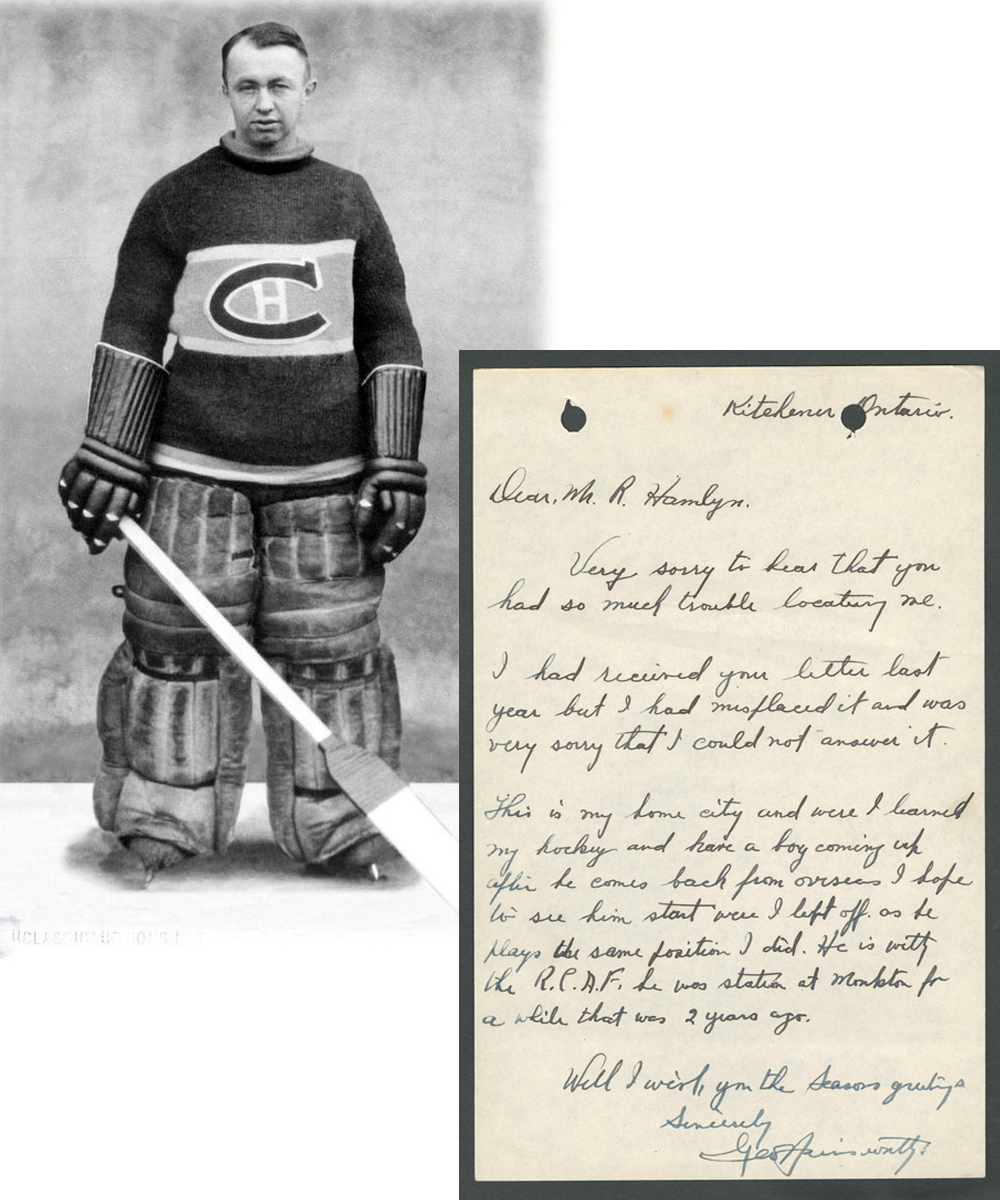 CH
Kitchener Ontario.
Dear, Mr. R. Hamlyn.
Very sorry to hear that you
had so much trouble locating me.
I had received your letter last
year but I had misplaced it and was
very sorry that I could not answer it.
This is my home city and were I learned
my hockey and have a boy coming up
after he comes back from overseas I hope
to see him start were I left off. as he
plays the same position I did. He is with
the R.C.A.F. he was station at Monkton for
a while that was 2 years ago.
Well I wish, you the Seasons greetings
Sincerely
Geo Hainsworth